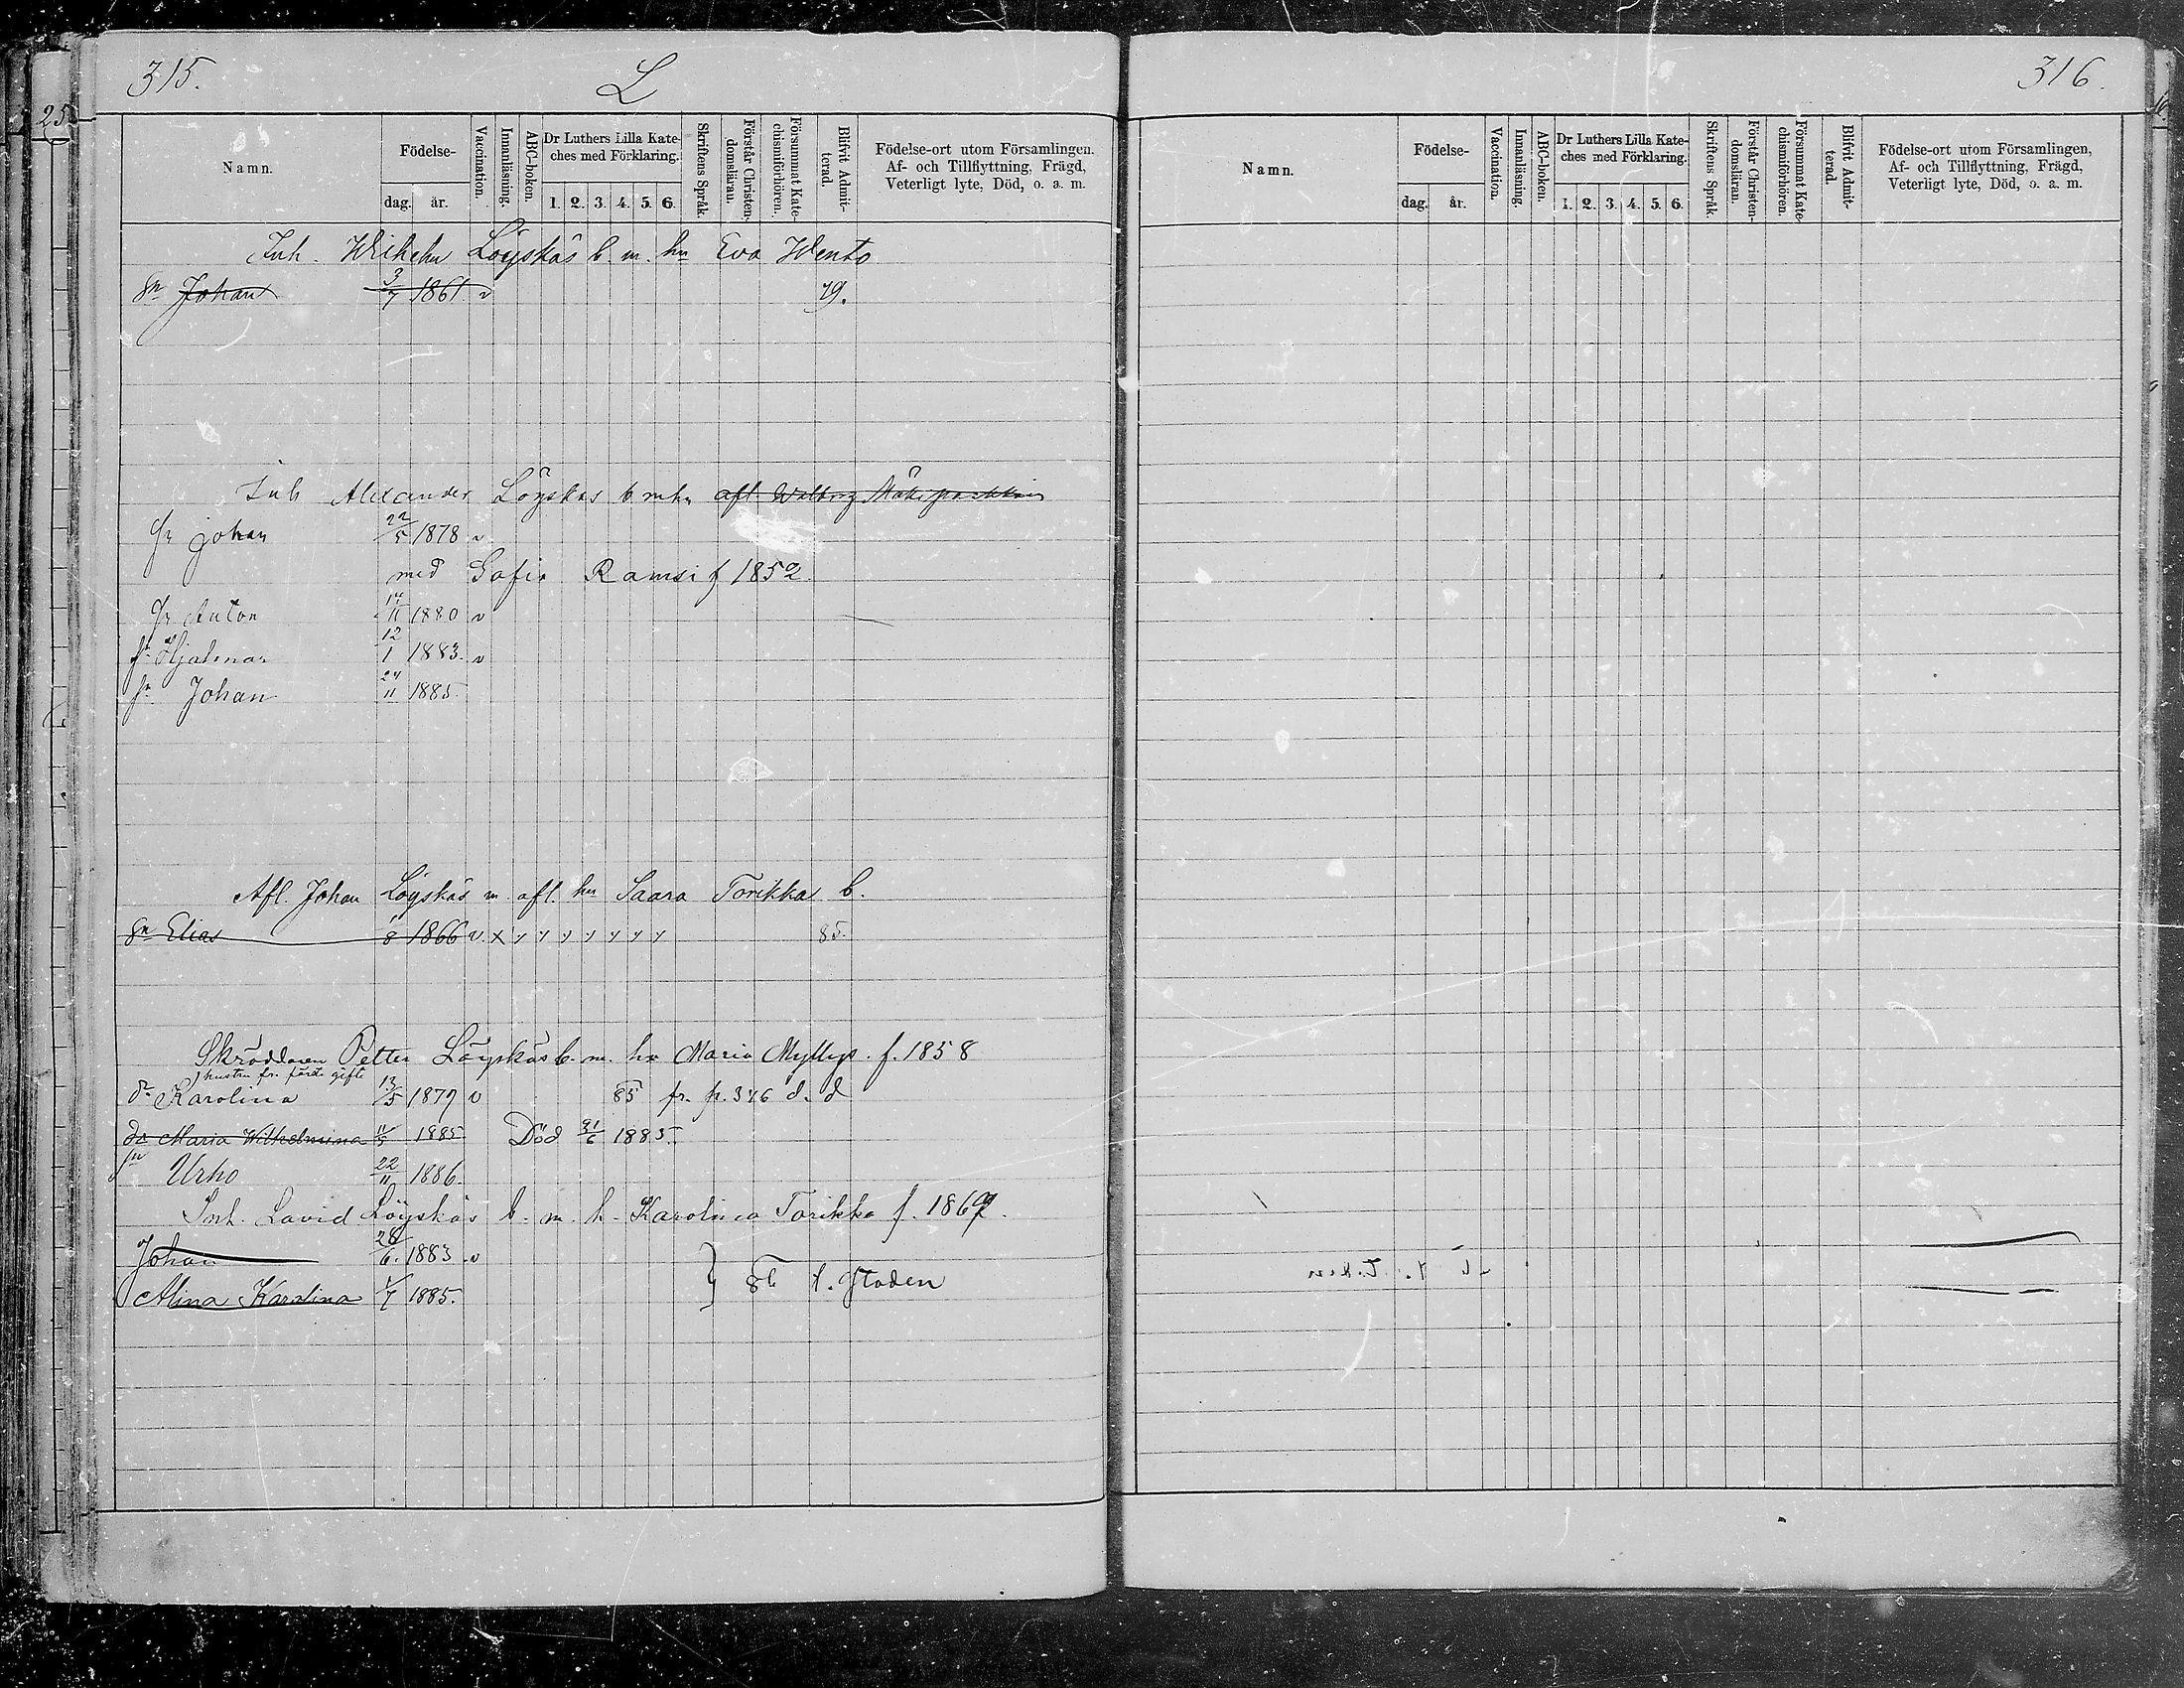 315.
L
Namn.
Födelse-
dag. år.
Vaccination.
Innanläsning.
ABC-boken.
Dr Luthers Lilla Kate-
ches med Förklaring.
1. 2. 3. 4. 5. 6.
Skriftens Språk.
Förstår Christen-
domsläran.
Försummat Kate-
chismiförhören.
Blifvit Admit-
terad.
Födelse-ort utom Församlingen.
Af- och Tillflyttning, Frägd,
Veterligt lyte, Död, o. a. m.
Inh. Wilhelm Löyskäs b. m. hu Eva Wento
Sn Johan 3/7 1861. v 79.
Inh Alexander Löyskäs b m hu afl. Walborg
Sn Johan 22/5 1878 v
med Sofia Ramsi f 1852.
Sn Anton 14/11 1880 v
Sn Hjalmar 12/1 1883. v
Sn Johan 24/11 1885
Afl. Johan Löyskäs m. afl. hu Saara Torikka b.
Sn Elias 1/8 1866 v. x y y y y y y y 85.
Skräddaren Petter Löyskäs b. m. hu Maria Myllys. f. 1858
hustru fr. förra gifte
dr Karolina 13/5 1879 v 85 fr. p. 346 d. d
dr Maria Wilhelmina 11/5 1885 Död 21/6 1885.
Sn Urho 22/11 1886.
Inh. David Löyskäs b. m. h. Karolina Torikka f. 1862.
Johan 28/6. 1883 v
Alina Karolina 1/7 1885. } 86 t. Staden
316.
Namn.
Födelse-
dag. år.
Vaccination.
Innanläsning.
ABC-boken.
Dr Luthers Lilla Kate-
ches med Förklaring.
1. 2. 3. 4. 5. 6.
Skriftens Språk.
Förstår Christen-
domsläran.
Försummat Kate-
chismiförhören.
Blifvit Admit-
terad.
Födelse-ort utom Församlingen,
Af- och Tillflyttning, Frägd,
Veterligt lyte, Död, o. a. m.